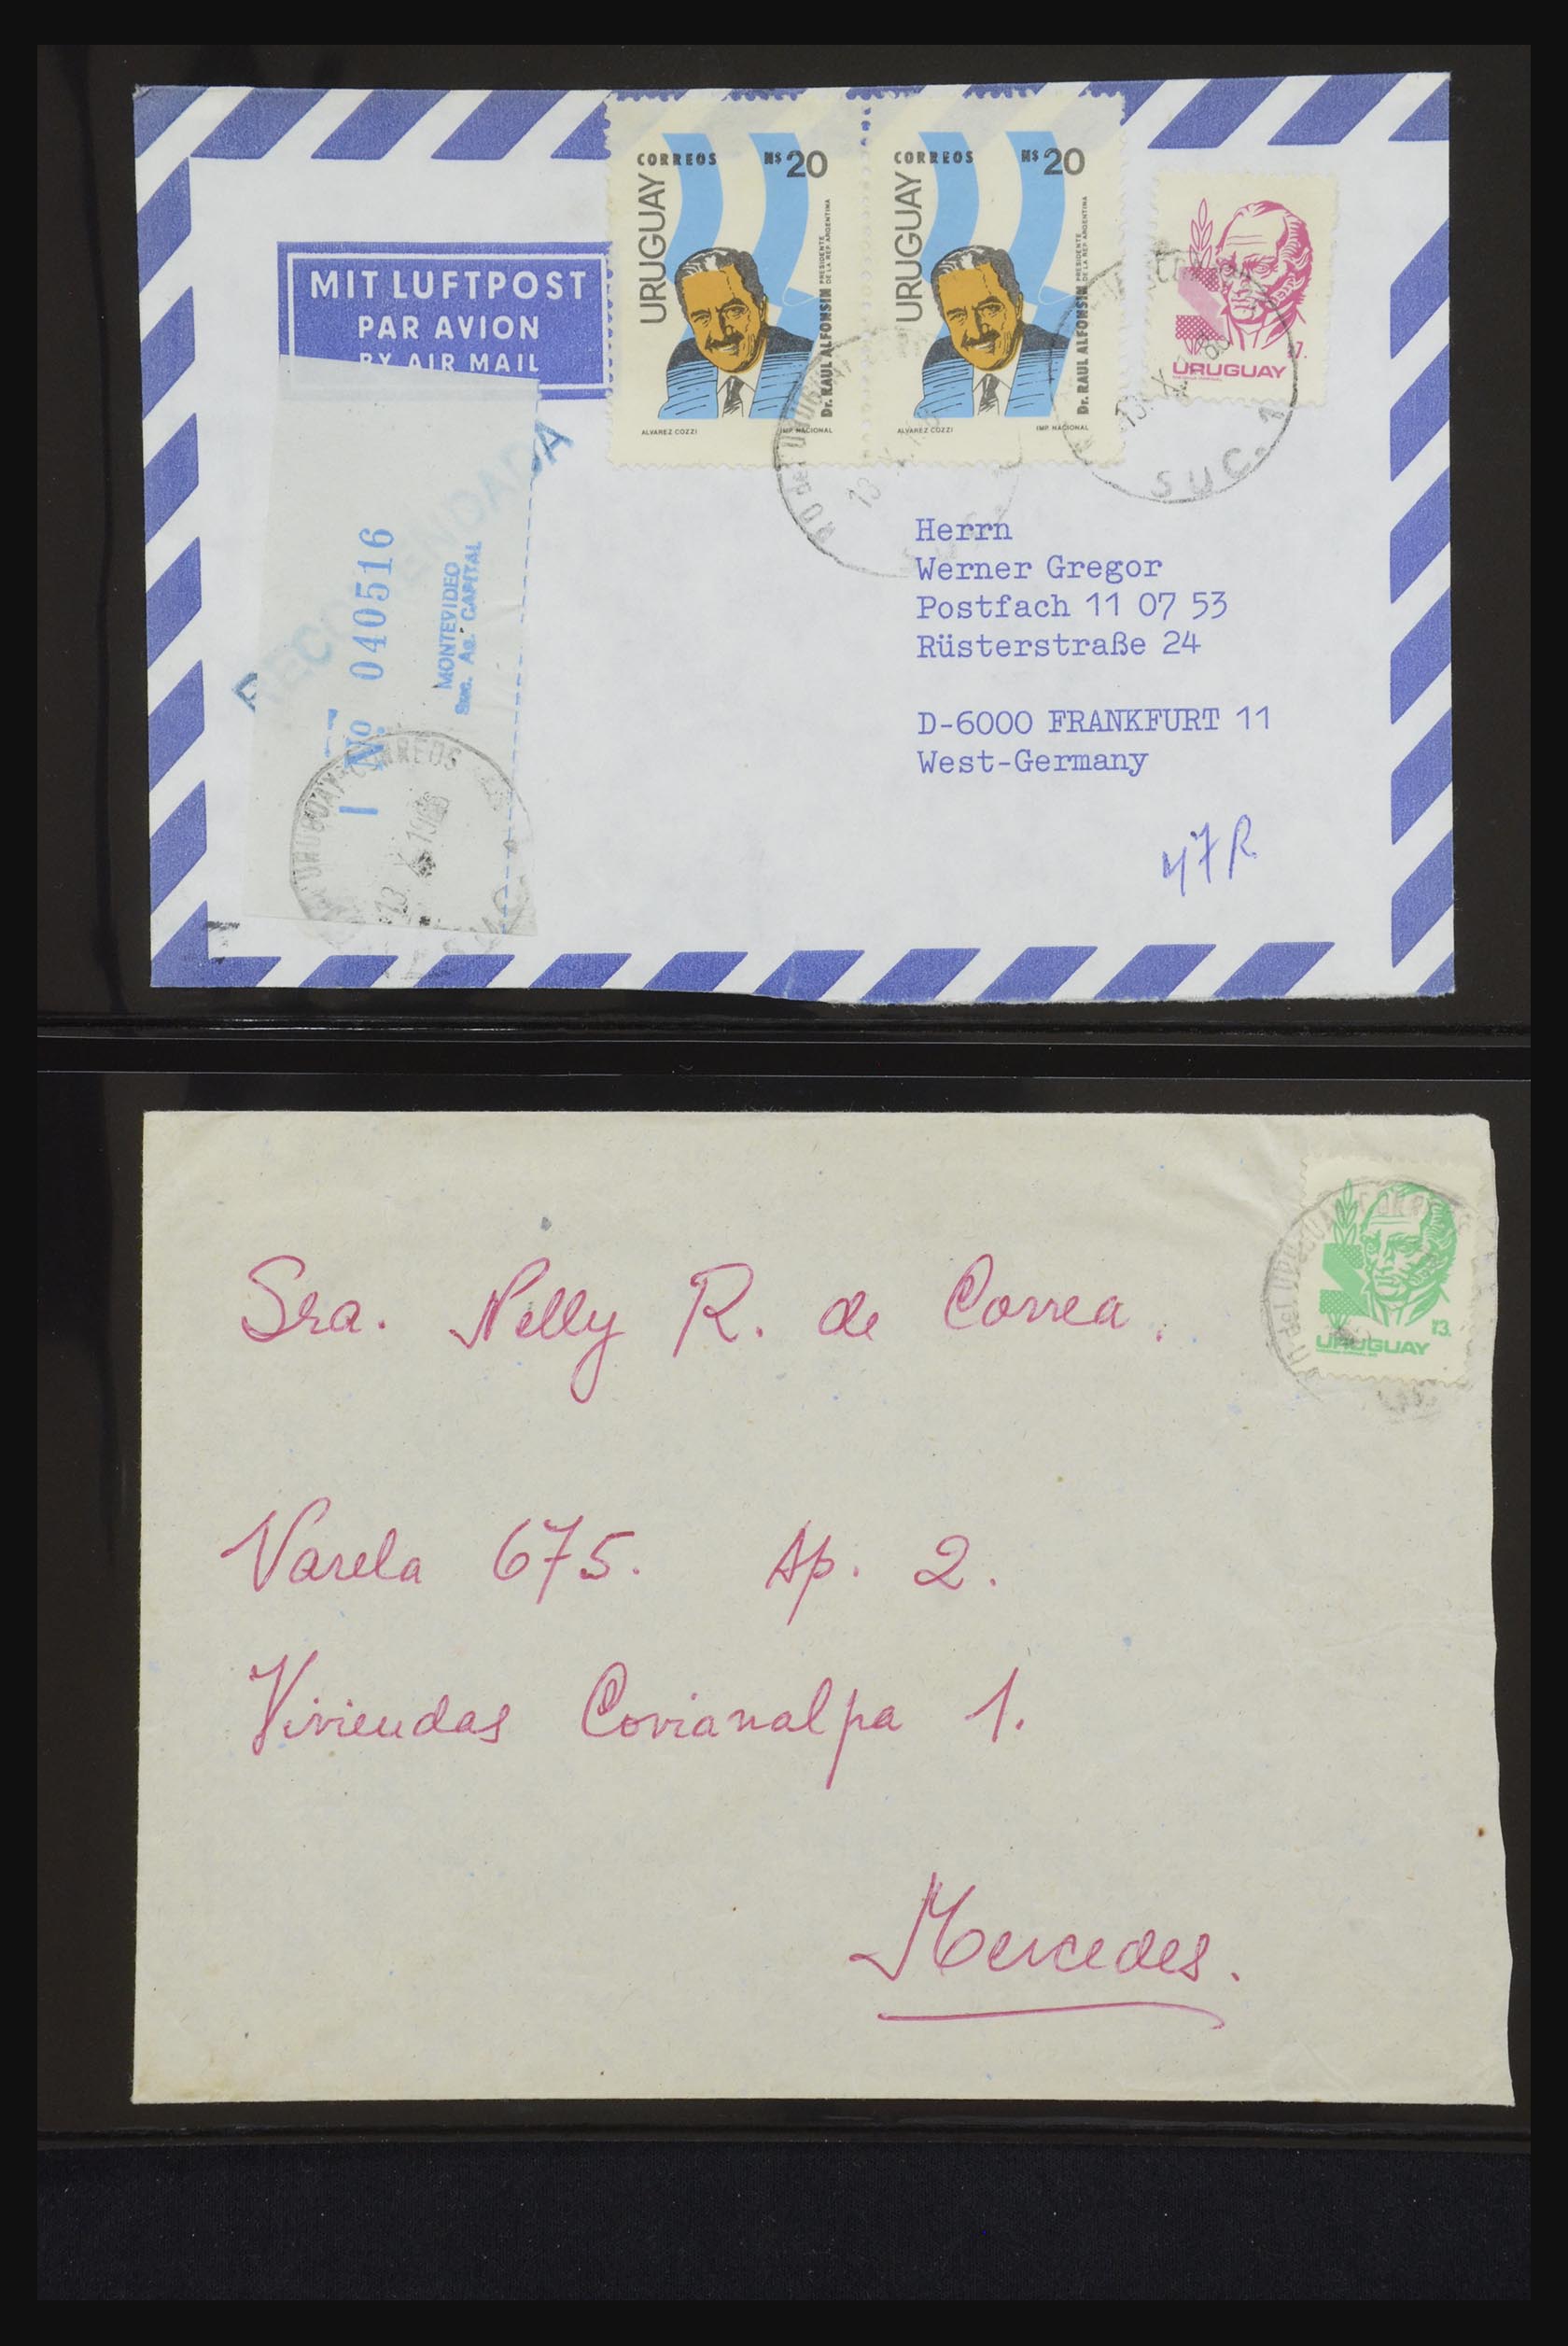 CORREOS N$ 20
URUGUAY
Dr. RAUL ALFONSIN PRESIDENTE DE LA REP. ARGENTINA
ALVAREZ COZZI IMP. NACIONAL
CORREOS N$ 20
URUGUAY
Dr. RAUL ALFONSIN PRESIDENTE DE LA REP. ARGENTINA
ALVAREZ COZZI IMP. NACIONAL
7.
URUGUAY
SUC. 1
MIT LUFTPOST
PAR AVION
BY AIR MAIL
RECOMENDADA
No. 040516
MONTEVIDEO
Suc. Ag. CAPITAL
URUGUAY CORREOS
13. X. 1986
Herrn
Werner Gregor
Postfach 11 07 53
Rüsterstraße 24
D-6000 FRANKFURT 11
West-Germany
47 R
13.
URUGUAY
Sra. Nelly R. de Correa.
Varela 675. Ap. 2.
Viviendas Covianalpa 1.
Mercedes.